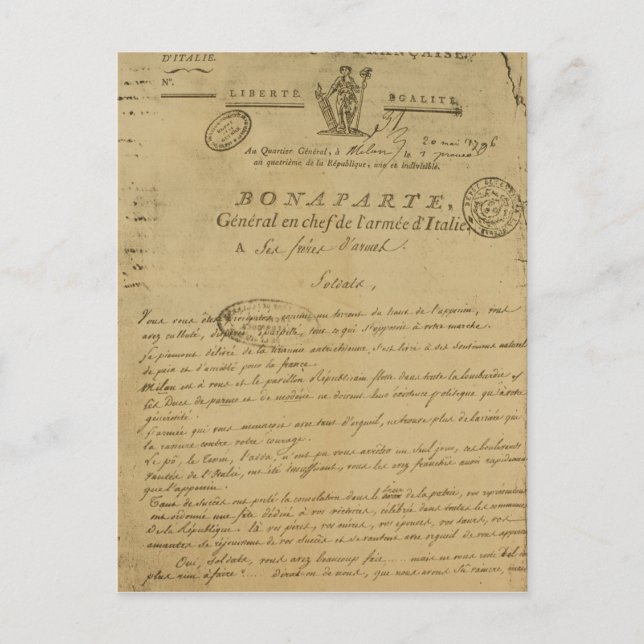 D'ITALIE. FRANÇAISE.
N°.
LIBERTÉ. EGALITÉ.
20 mai 1796
Au Quartier Général, à Milan le 1 prairial
an quatrième de la République, une et indivisible.
BONAPARTE,
Général en chef de l'armée d'Italie,
A Ses frères d'armes.
Soldats,
Vous vous êtes précipités comme un torrent du haut de l'apennin, vous
avez culbuté, dispersé, éparpillé tout ce qui s'opposait à votre marche.
Le piemont délivré de la tirannie autrichienne, s'est livré à ses sentimens naturels
de paix et d'amitié pour la france.
Milan est à vous et le pavillon Républicain flotte dans toute la lombardie
Les Ducs de parme et de modène ne doivent leur existence politique qu'à votre
générosité.
L'armée qui vous menaçoit avec tant d'orgueil, ne trouve plus de barrière qui
la rassure contre votre courage.
Le pô, le Tessin, l'adda, n'ont pu vous arrêter un seul jour, ces boulevards
vantés de l'Italie, ont été insuffisans, vous les avez franchis aussi rapidement
que l'apennin.
Tant de succès ont porté la consolation dans le sein de la patrie, vos représentans
ont ordonné une fête dédiée à vos victoires, célébrée dans toutes les communes
De la République. là vos pères, vos mères, vos épouses, vos sœurs, vos
amantes se réjouissent de vos succès et se vantent avec orgueil de vous appartenir
Oui, Soldats, vous avez beaucoup fait.... mais ne vous reste t-il
plus rien à faire?.... Dira-t-on de nous, que nous avons sû vaincre, mais